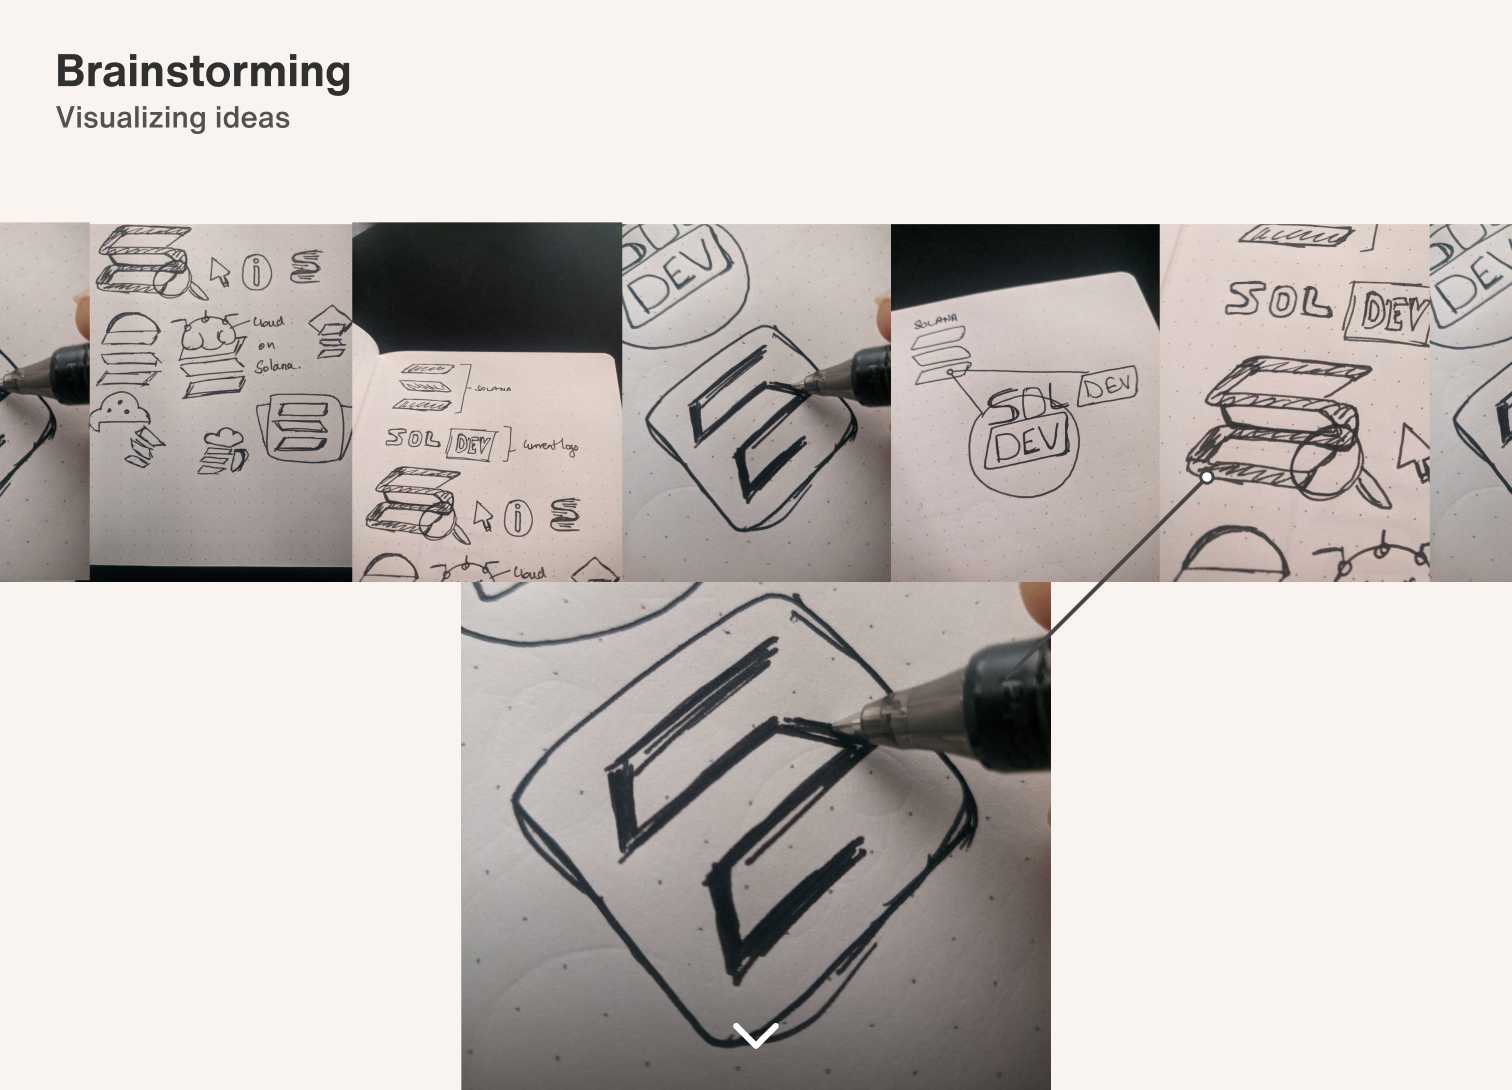 Brainstorming
Visualizing ideas
i
Cloud
on
Solana.
SOLANA
SOL DEV
Current logo
i
Cloud
DEV
SOLANA
SOL DEV
DEV
SOL DEV
DEV